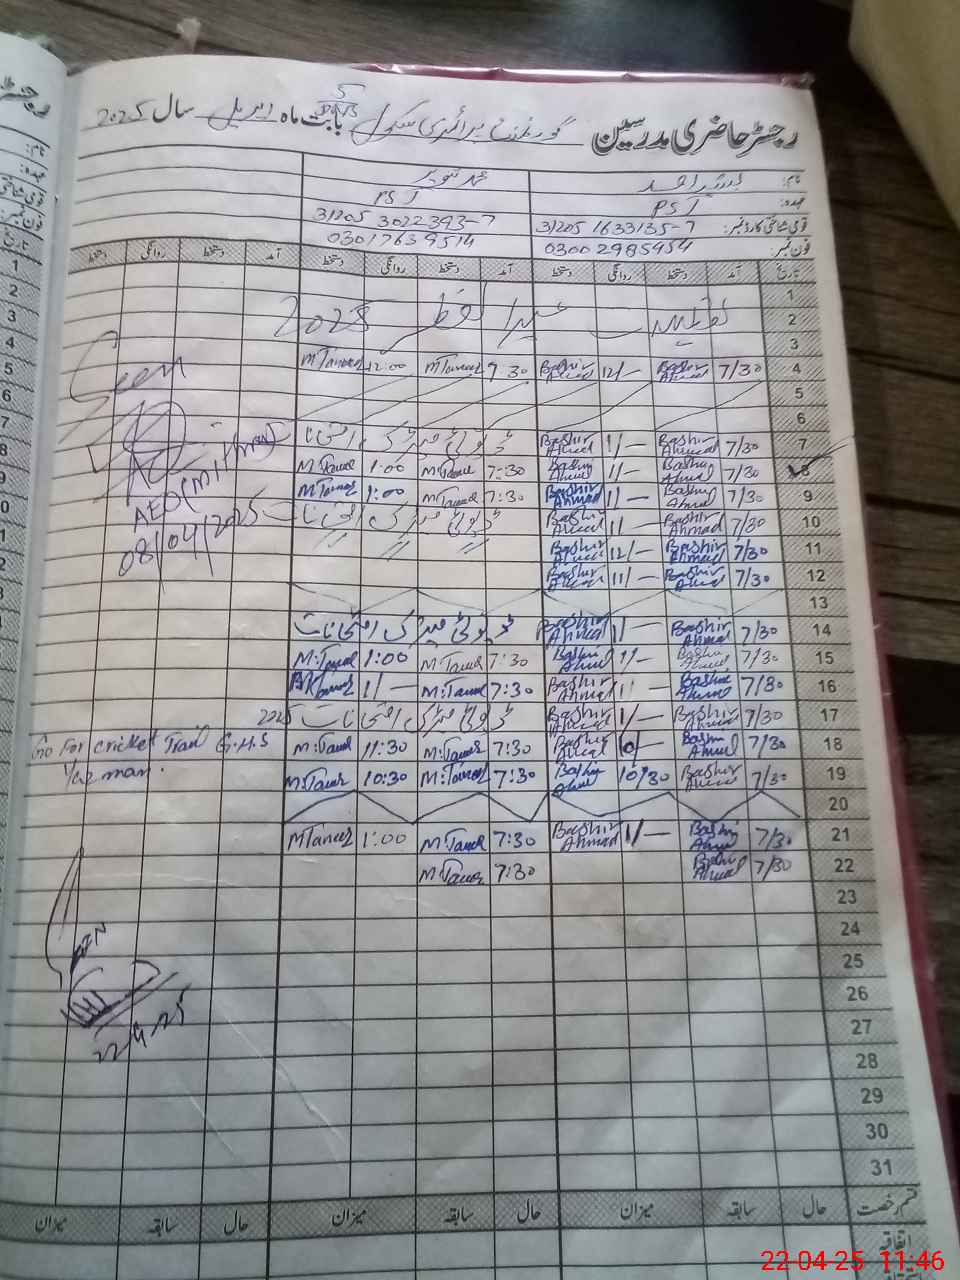 رجسٹر حاضری مدرسین گورنمنٹ پرائمری سکول بابت ماہ اپریل سال 2025
نام: بشیر احمد محمد تنویر
عہدہ: PST PST
قومی شناختی کارڈ نمبر: 31205 1633135-7 31205 3022393-7
فون نمبر: 0300 2985954 03017639514
تاریخ آمد دستخط روانگی دستخط آمد دستخط روانگی دستخط آمد دستخط روانگی دستخط
1
2 تعطیلات عید الفطر 2025
3
4 7/30 Bashir Ahmad 12/— Bashir Ahmad 7:30 M Tanveer 12:00 M Tanveer
5
6
7 7/30 Bashir Ahmad 1/— Bashir Ahmad ڈیوٹی میٹرک امتحانات
8 7/30 Bashir Ahmad 1/— Bashir Ahmad 7:30 M:Tanveer 1:00 M:Tanveer
9 7/30 Bashir Ahmad 1/— Bashir Ahmad 7:30 M:Tanveer 1:00 M:Tanveer
10 7/30 Bashir Ahmad 1/— Bashir Ahmad ڈیوٹی میٹرک امتحانات
11 7/30 Bashir Ahmad 12/— Bashir Ahmad // // //
12 7/30 Bashir Ahmad 1/— Bashir Ahmad
13
14 7/30 Bashir Ahmad 1/— Bashir Ahmad ڈیوٹی میٹرک امتحانات
15 7/30 Bashir Ahmad 1/— Bashir Ahmad 7:30 M:Tanveer 1:00 M:Tanveer
16 7/30 Bashir Ahmad 1/— Bashir Ahmad 7:30 M:Tanveer 1/— M:Tanveer
17 7/30 Bashir Ahmad 1/— Bashir Ahmad ڈیوٹی میٹرک امتحانات 2025
18 7/30 Bashir Ahmad Bashir Ahmad 7:30 M:Tanveer 11:30 M:Tanveer
19 7/30 Bashir Ahmad 10/30 Bashir Ahmad 7:30 M:Tanveer 10:30 M:Tanveer
20
21 7/30 Bashir Ahmad 1/— Bashir Ahmad 7:30 M:Tanveer 1:00 M Tanveer
22 7/30 Bashir Ahmad 7:30 M:Tanveer
23
24
25
26
27
28
29
30
31
Seen
AEO
08/04/2025
Go For cricket Trail G.H.S
22-4-25
قسم رخصت حال سابقہ میزان حال سابقہ میزان حال سابقہ میزان
اتفاقیہ
22-04-25 11:46